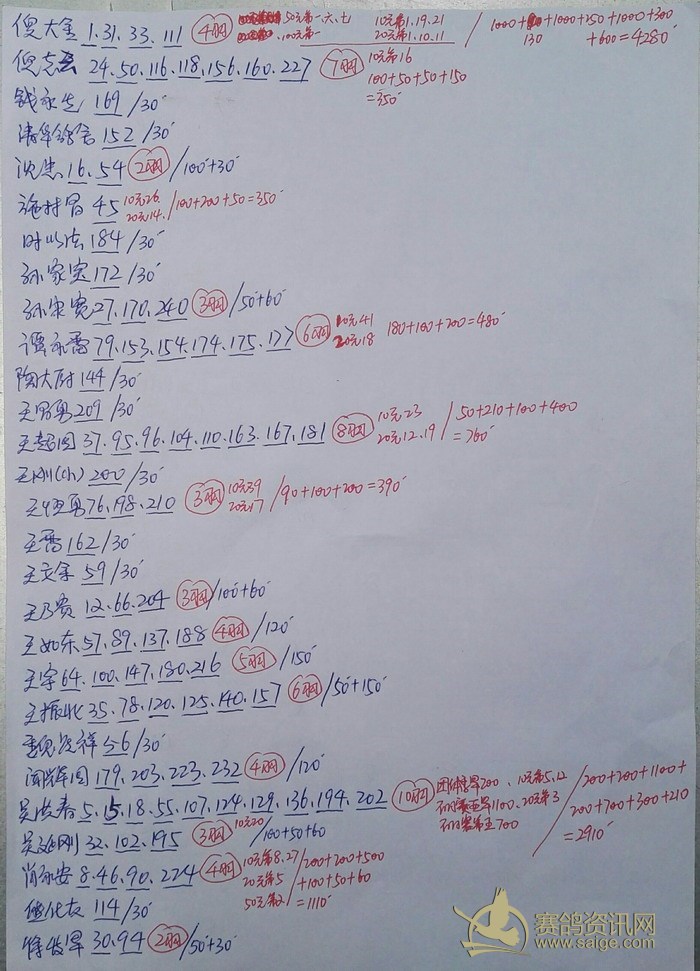 倪大金 1.31.33.111 4羽 50元第一.六.七 100元第一 10元第1.19.21 20元第1.10.11 / 1000+ +1000+250+1000+300 130 +600=4280
倪 24.50.116.118.156.160.227 7羽 10元第16 100+50+50+150 =350
钱永生 169/30
152/30
沈忠 16.54 2羽/100+30
施村冒 45 10元26. 20元14./100+200+50=350
时 184/30
孙家宝 172/30
孙宋宽 27.170.240 3羽/50+60
谭永 79.153.154.174.175.177 6羽 10元41 20元18 180+100+200=480
陶大尉 144/30
王 勇 209/30
王 37.95.96.104.110.163.167.181 8羽 10元23 20元12.19 / 50+210+100+400 =760
王刚(小) 200/30
王恒勇 76.198.210 3羽 10元39 20元17 /90+100+200=390
王 162/30
王文金 59/30
王乃贵 12.66.204 3羽/100+60
王如东 57.89.137.188 4羽/120
王宇 64.100.147.180.216 5羽/150
王振北 35.78.120.125.140.157 6羽/50+150
魏 祥 56/30
179.203.223.232 4羽/120
吴 春 5.15.18.55.107.124.129.136.194.202 10羽 200、10元第5.12 1100.20元第3 700 / 200+200+1100+ 200+700+300+210 =2910
吴延刚 32.102.195 3羽 10元20 /100+50+60
肖永安 8.46.90.224 4羽 10元第8.27 20元第5 50元第2 /200+200+500 +100+50+60 =1110
114/30
徐 30.94 2羽/50+30
赛鸽资讯网
www.saige.com